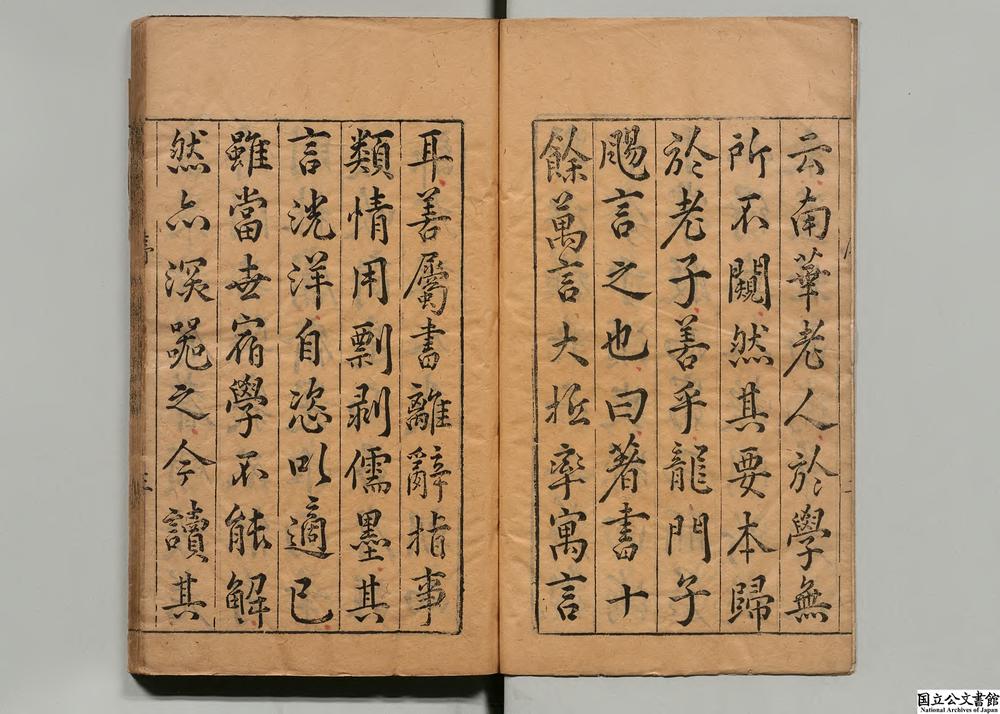 云南華老人於學無
所不闚然其要本歸
於老子善乎龍門子
賜言之也曰著書十
餘萬言大抵率寓言
耳善屬書離辭指事
類情用剽剥儒墨其
言洸洋自恣以適己
雖當世宿學不能解
然亦深 之今讀其
序
国立公文書館
National Archives of Japan